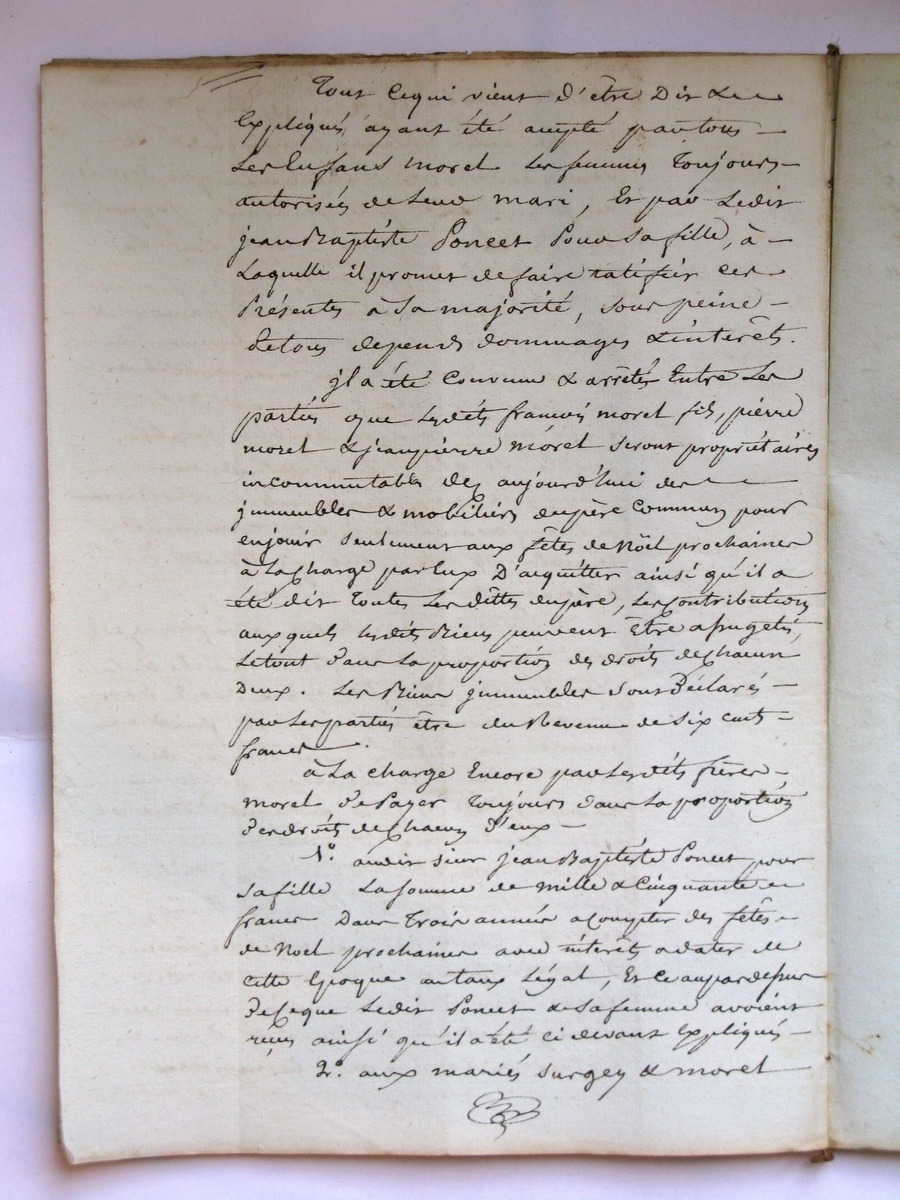 Tout ce qui vient d'être dit &
Expliqués, ayant été accepté par tous
Les Enfans morel Les femmes Toujours
autorisées de Leur mari, Et par Ledit
jean Baptéste Poncet Pour Sa fille, à
Laquelle il promet de faire ratifier ces
Présentes à Sa majorité, sous peine
De tous depends dommages & intérêts.
jl a été Convenu & arrêtés Entre Les
parties que Lesdits françois morel fils, pierre
morel & jeanpierre morel seront propriétaires
incommutables dès aujourd'hui des
jmmeubles & mobiliers du père Commun pour
en jouir seulement aux fêtes de Noël prochaines
à La Charge par Eux D'acquitter ainsi qu'il a
été dit Toutes Les dettes du père, Les Contributions
auxquels Lesdits Biens peuvent Être assugetis,
Le tout dans La proportion des droits de Chacun
Deux. Les Biens jmmeubles Sont Déclarés
par Les parties être du Revenu de Six cent
francs.
à La charge Encore par Lesdits frères
morel de Payer Toujours dans La proportion
des droits de Chacun d'eux
1º. audit sieur jean Baptéste Poncet pour
sa fille La somme de mille & Cinquante
francs Dans Trois années a Compter des fêtes
de Noel prochaines avec intérêts a dater de
cette Epoque au taux Légal, Et ce au par dessus
de Ceque Ledit Poncet & Sa femme avoient
reçus ainsi qu'il a été ci devant Expliqués
2º. aux mariés Surgey & morel